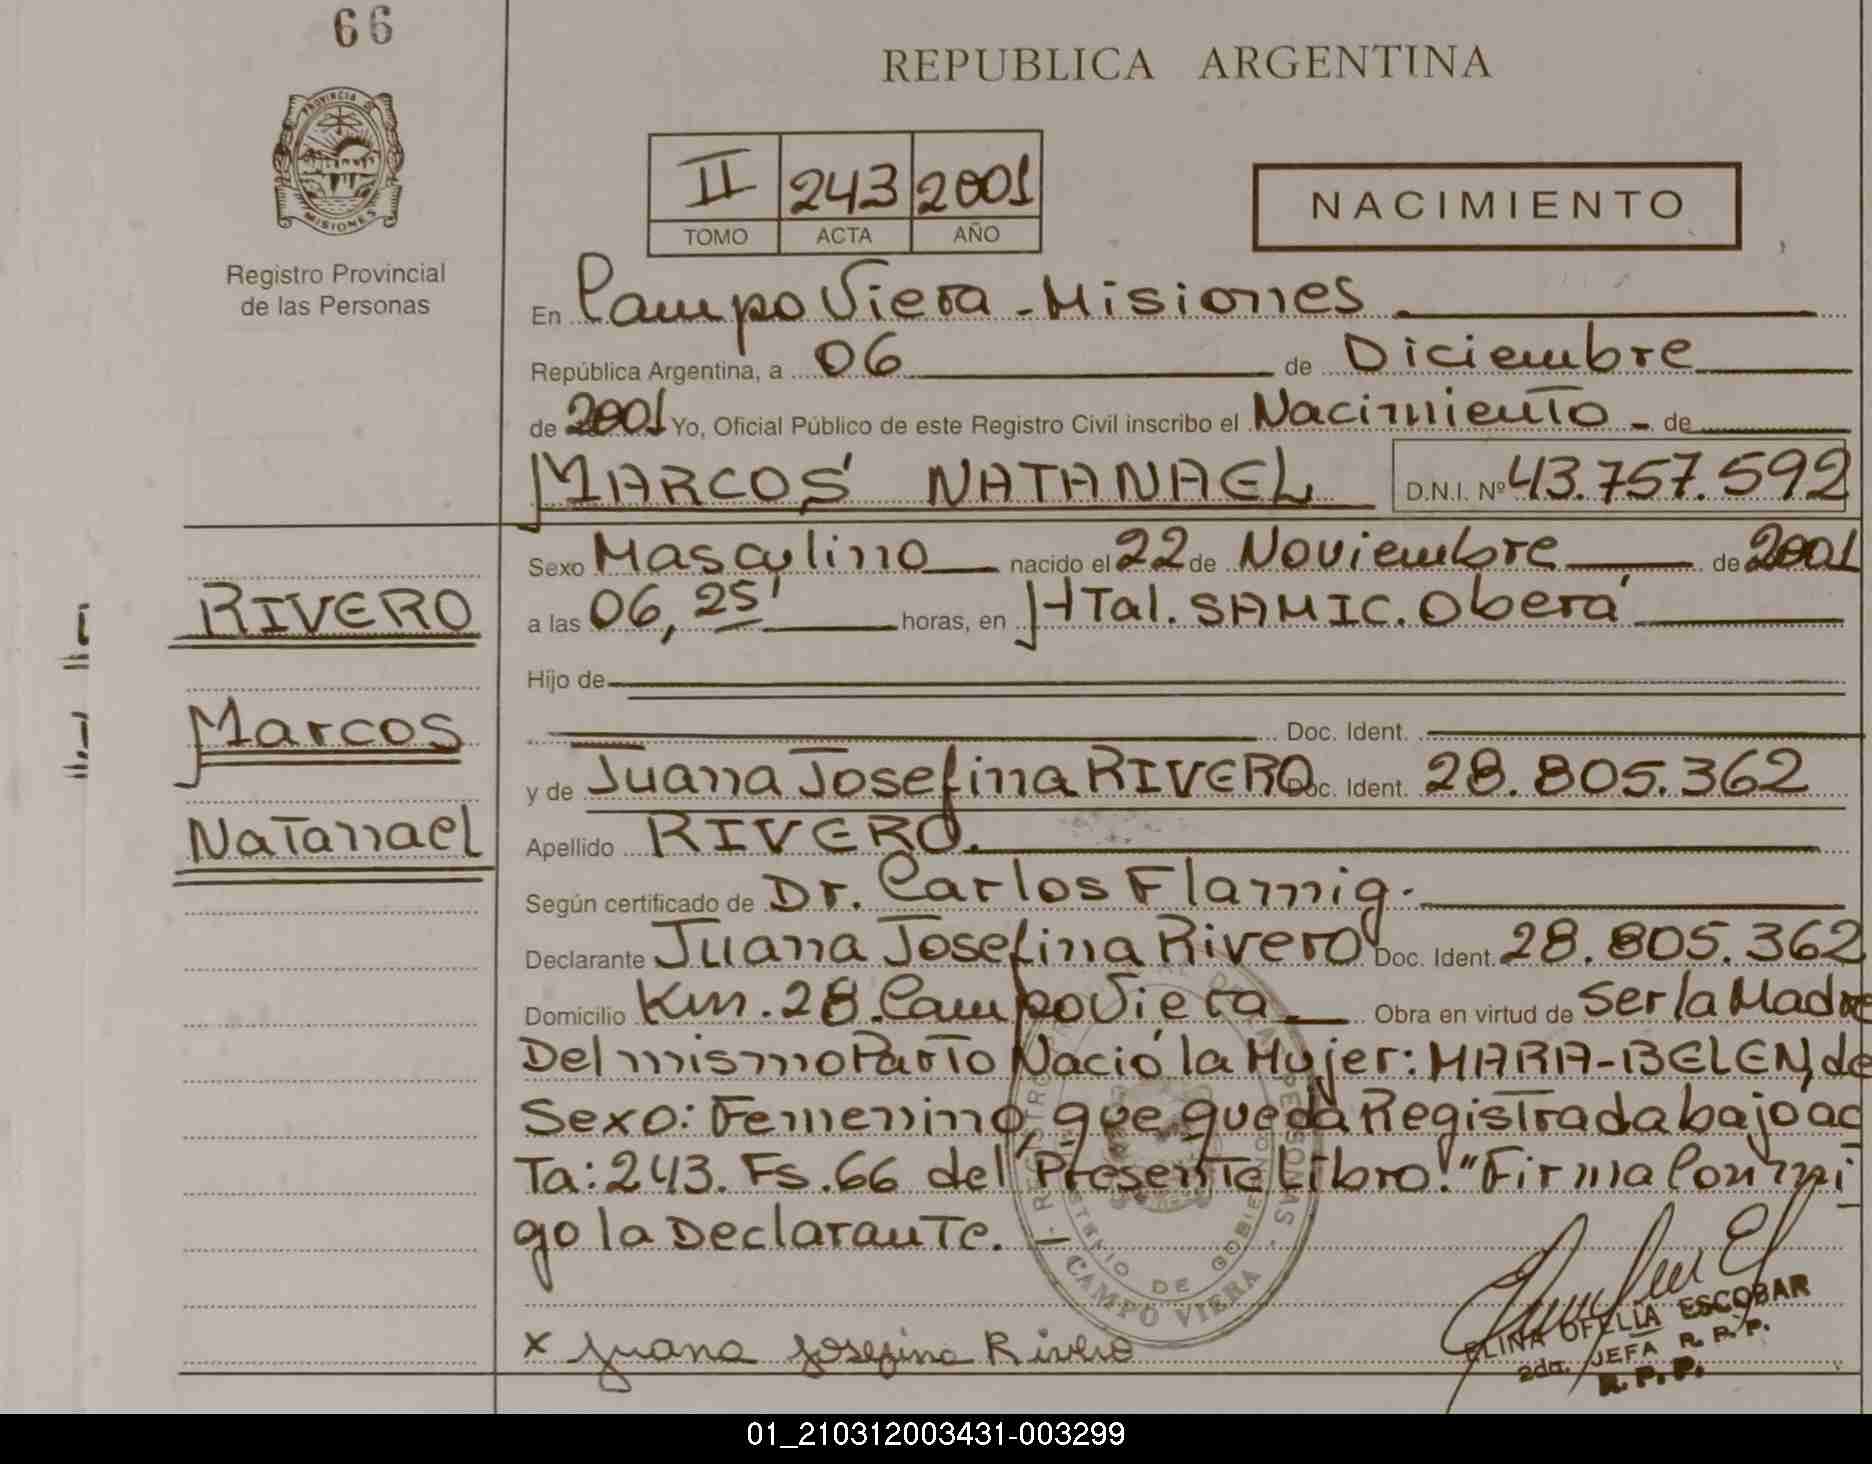 66
PROVINCIA DE
MISIONES
Registro Provincial
de las Personas
REPUBLICA ARGENTINA
II 243 2001
TOMO ACTA AÑO
NACIMIENTO
En Campo Viera - Misiones
República Argentina, a 06 de Diciembre
de 2001 Yo, Oficial Público de este Registro Civil inscribo el Nacimiento - de
MARCOS NATANAEL D.N.I. Nº 43.757.592
Sexo Masculino nacido el 22 de Noviembre de 2001
a las 06,25' horas, en HTal. SAMIC. Oberá
Hijo de
Doc. Ident.
y de Juana Josefina RIVERO Doc. Ident. 28.805.362
Apellido RIVERO.
Según certificado de Dr. Carlos Flamig.
Declarante Juana Josefina Rivero Doc. Ident. 28.805.362
Domicilio Km. 28. Campo Viera Obra en virtud de Ser la Madre
Del mismo Parto Nació la Mujer: MARA-BELEN, de
Sexo: Femenino, que queda Registrada bajo ac
Ta: 243. Fs. 66 del Presente Libro. "Firma Conmi
go la Declarante. -
RIVERO
Marcos
Natanael
CAMPO VIERA
x Juana Josefina Rivero
ELINA OFELIA ESCOBAR
2da. JEFA R. P. P.
R. P. P.
01_210312003431-003299